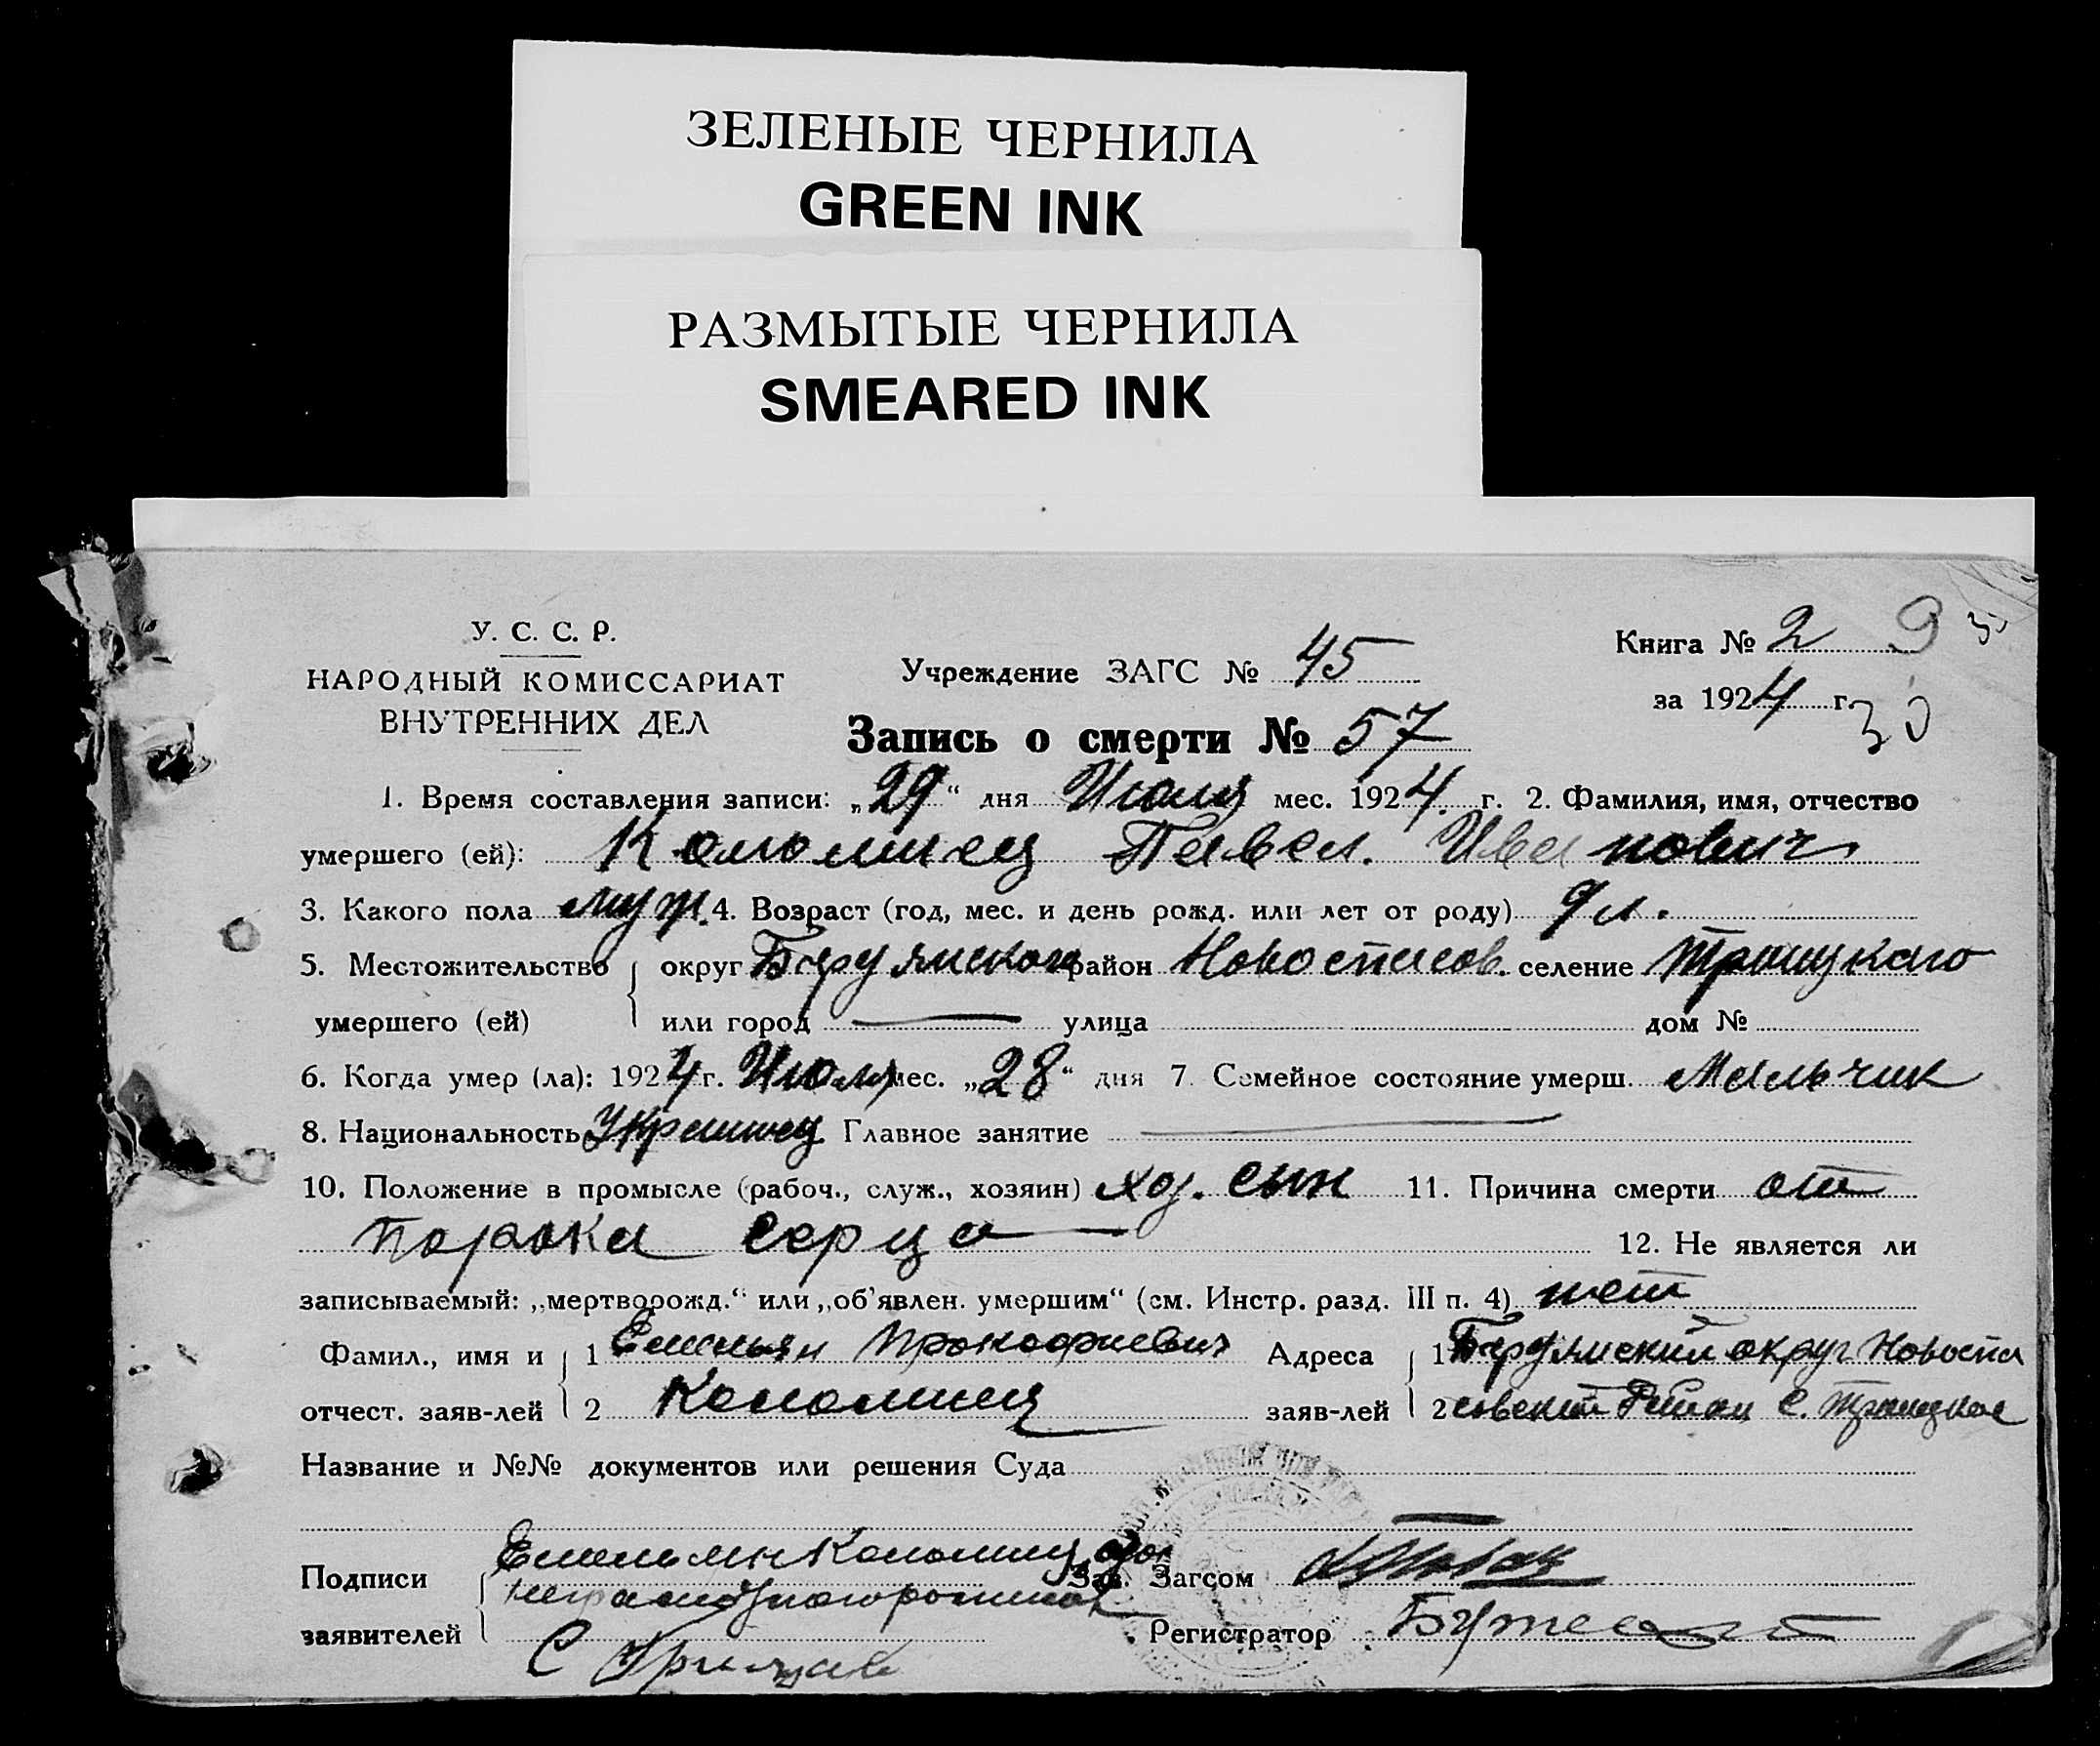 ЗЕЛЕНЫЕ ЧЕРНИЛА
GREEN INK
РАЗМЫТЫЕ ЧЕРНИЛА
SMEARED INK
У. С. С. Р.
НАРОДНЫЙ КОМИССАРИАТ
ВНУТРЕННИХ ДЕЛ
Учреждение ЗАГС № 45
Книга № 2 9
за 1924 г. 30
Запись о смерти № 57
1. Время составления записи: „29“ дня Июля мес. 1924 г. 2. Фамилия, имя, отчество
умершего (ей): Коломиец Павел. Иванович
3. Какого пола муж. 4. Возраст (год, мес. и день рожд. или лет от роду) 9 л.
5. Местожительство округ Бердянском район Новоспасов. селение Троицкаго
умершего (ей) или город — улица дом №
6. Когда умер (ла): 1924 г. Июля мес. „28“ дня 7. Семейное состояние умерш. Мальчик
8. Национальность Украинец Главное занятие —
10. Положение в промысле (рабоч., служ., хозяин) хоз. сын 11. Причина смерти от
порока серца 12. Не является ли
записываемый: „мертворожд.“ или „об’явлен. умершим“ (см. Инстр. разд. III п. 4) нет
Фамил., имя и 1 Емельян Прокофиевич Адреса 1 Бердянский округ Новоспа
отчест. заяв-лей 2 Коломиец заяв-лей 2 совский Район с. Троицкое
Название и №№ документов или решения Суда
Подписи Емельян Коломиец Зав. Загсом
заявителей Регистратор